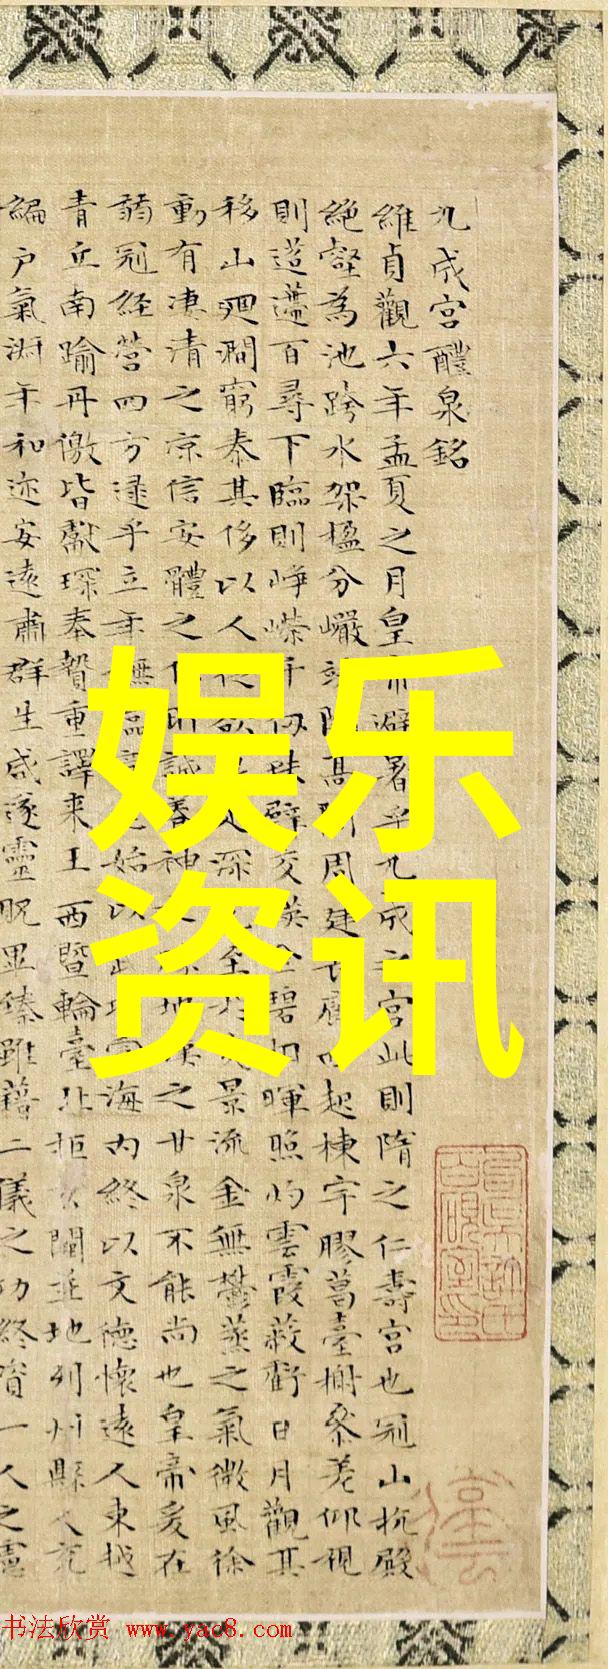 九成宮醴泉銘
維貞觀六年孟夏之月皇帝避暑乎九成之宮此則隋之仁壽宮也冠山抗殿
絕壑為池跨水架楹分巖竦闕高閣周建長廊四起棟宇膠葛臺榭參差仰視
則迢遰百尋下臨則崢嶸千仞珠壁交映金碧相暉照灼雲霞蔽虧日月觀其
移山迴澗窮泰其侈以人從欲足深尤至於炎景流金無鬱蒸之氣微風徐
動有淒清之涼信安體之佳所誠養神之勝地漢之甘泉不能尚也皇帝爰在
弱冠經營四方逮乎立年撫臨始以武功海內終以文德懷遠人東越
青丘南踰丹徼皆獻琛奉贄重譯來王西暨輪臺北拒玄闕並地列州縣人充
編戶氣淑年和迩安遠肅群生咸遂靈貺畢臻雖藉二儀之功終資一人之慮
娱乐
资讯
书法欣赏 www.yac8.com